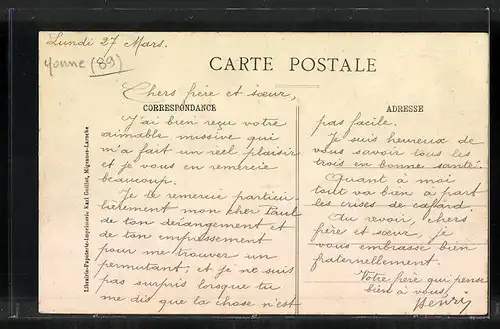 Lundi 27 Mars.
yonne (89)
CARTE POSTALE
Chers frère et sœur,
CORRESPONDANCE
J'ai bien reçu votre
aimable missive qui
m'a fait un réel plaisir
et je vous en remercie
beaucoup.
Je te remercie particu
lièrement mon cher Paul
de ton dérangement et
de ton empressement
pour me trouver un
permutant; et je ne suis
pas surpris lorsque tu
me dis que la chose n'est
ADRESSE
pas facile.
Je suis heureux de
vous savoir tous les
trois en bonne santé.
Quant à moi
tout va bien à part
les crises de cafard
Au revoir, chers
frère et sœur, je
vous embrasse bien
fraternellement.
Votre frère qui pense
bien à vous.
Henry
Librairie-Papeterie-Imprimerie Karl Guillot, Migennes-Laroche